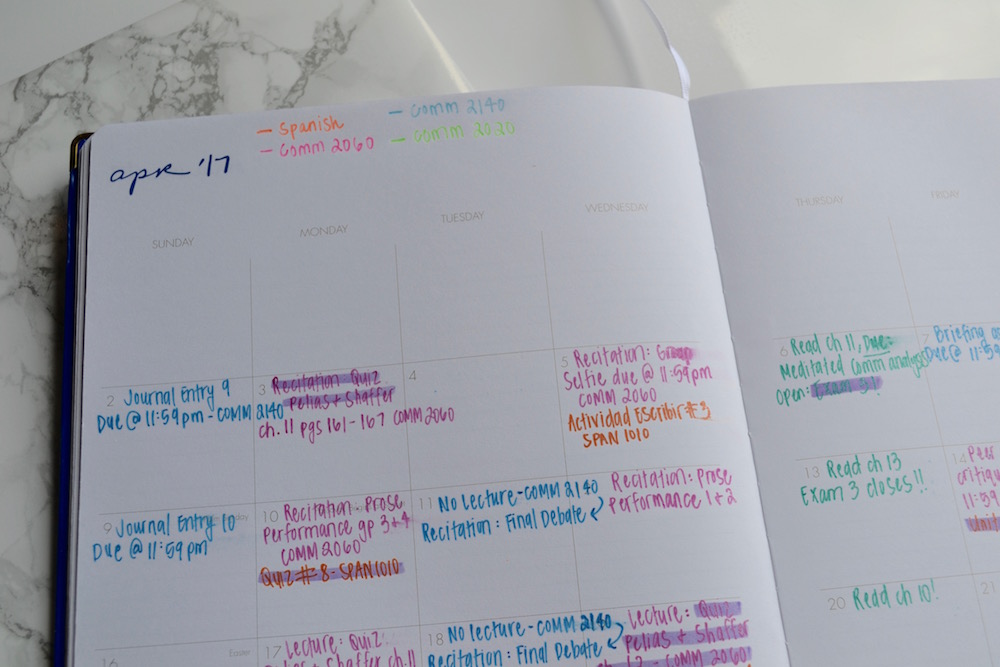 - Spanish
- Comm 2060
- Comm 2140
- Comm 2020
apr '17
SUNDAY
MONDAY
TUESDAY
WEDNESDAY
THURSDAY
FRIDAY
2 Journal Entry 9
Due @ 11:59pm - COMM 2140
3 Recitation Quiz
Pelias + Shaffer
ch. 11 pgs 161-167 COMM 2060
4
5 Recitation: Group
Selfie due @ 11:59pm
COMM 2060
Actividad Escribir #3
SPAN 1010
6 Read ch 11, Due:
Meditated Comm analysis
open: Exam 3!
7 Briefing
Due @ 11:59
9 Journal Entry 10
Due @ 11:59pm
10 Recitation: Prose
Performance gp 3+4
COMM 2060
Quiz #8 - SPAN 1010
11 No Lecture - COMM 2140
Recitation: Final Debate
Recitation: Prose
Performance 1+2
13 Read ch 13
Exam 3 closes!!
14 Peer
critique
11:59
16
Easter
17 Lecture: Quiz
Pelias + Shaffer ch. 11
18 No lecture - COMM 2140
Recitation: Final Debate
Lecture: Quiz
Pelias + Shaffer
ch. 12 - COMM 2060
20 Read ch 10!
21